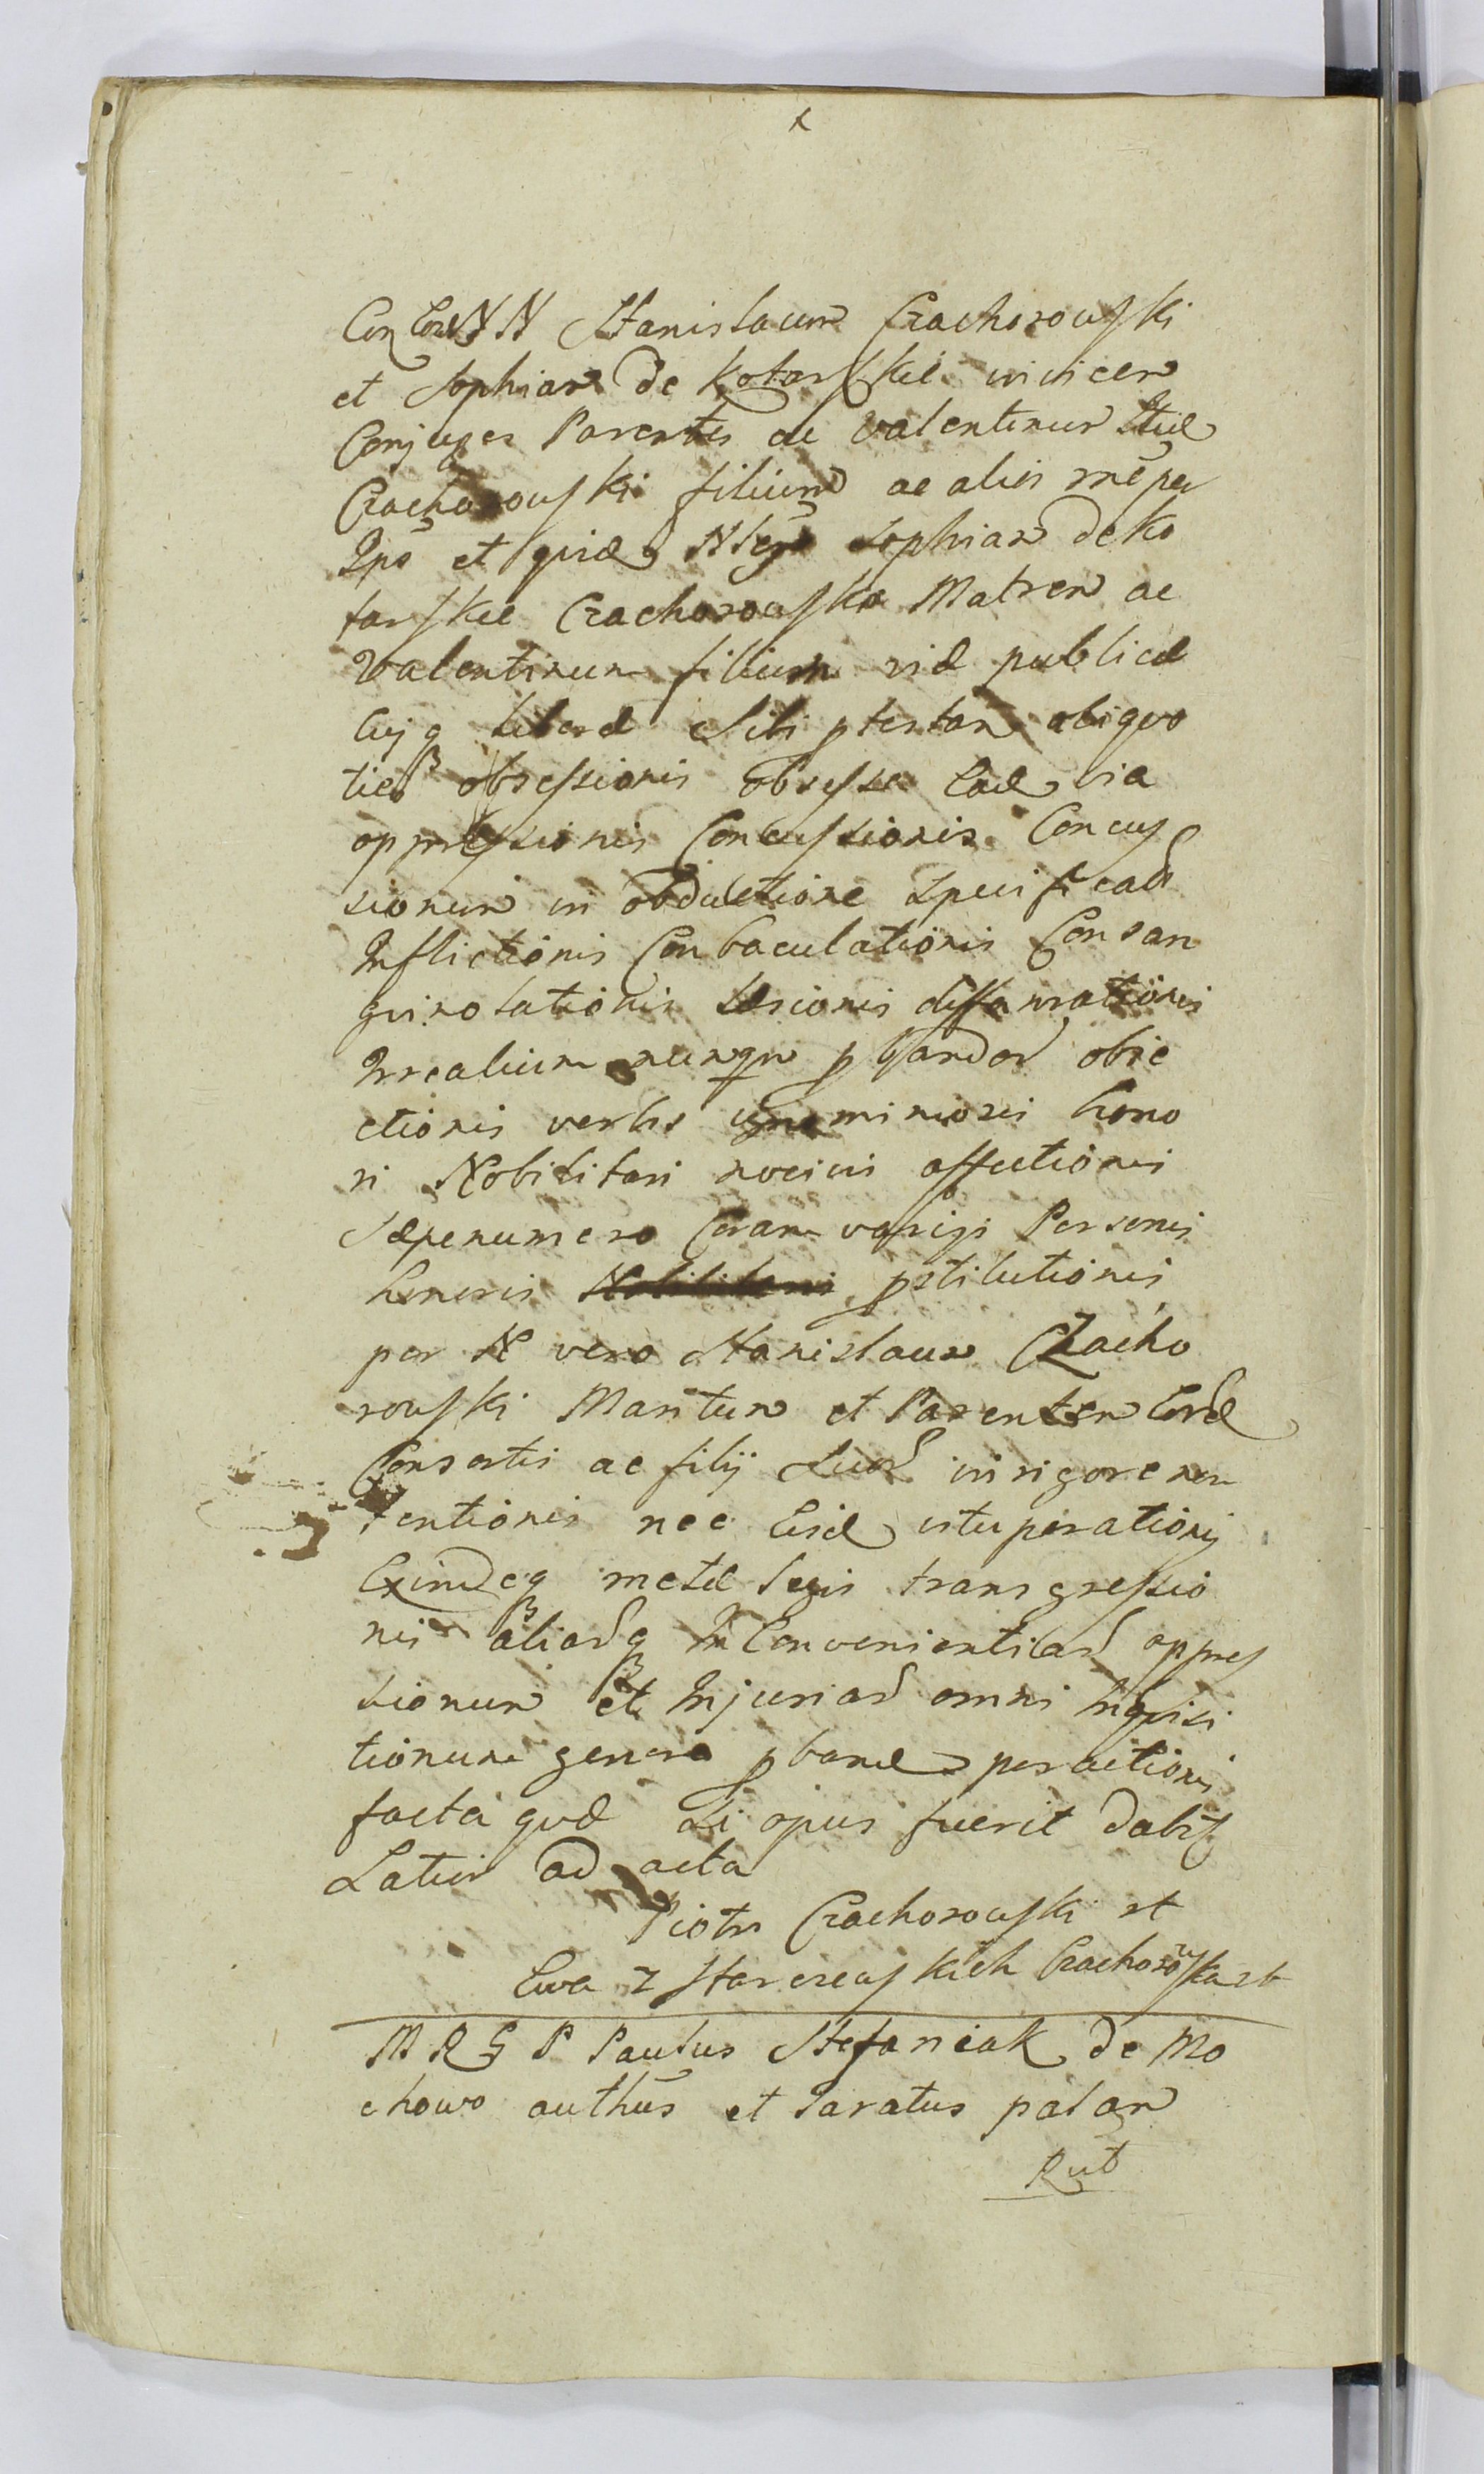 Con Eosd NN Stanislaum Czachorowski
et Sophiam de Kotarskie invicem
Conjuges Parentes ac Valentinum Stud
Czachorowski filium ac alios me per
Ipõ et quid Nlem Sophiam de Ko
tarskie Czachorowska Matrem ac
Valentinum filium vid publica
Cujq libera Sibi ptestam aliquo
ties obsessionis obsesse Ead via
oppressionis Concussionis Concus
sionum in obductione specificad
Inflictionis Conbaculationis Consan
guinolationis Laesionis diffamationis
Irrealium nunqm pbandor obie
ctionis verbis ignominiosis hono
ri Nobilitari nocivis affectionis
Saepenumero Coram varijs Personis
honoris pstitutionis
per N vero Stanislaum Czacho
rowski Maritum et Parentem Eord
Consortis ac filij Suor in rigore non
tentionis nec Eisd vituperationis
Exindeq meta legis transgressio
nis aliarq InConvenientiar oppres
sionum et Injuriar omni Inquisi
tionum genere pband peractionis
facta qud si opus fuerit dabis
Latius ad acta
Piotr Czachorowski st
Ewa z Starczewskich Czachorowska st
M R G P Paulus Stefaniak de Mo
chowo authus et Iaratus palam
Rut